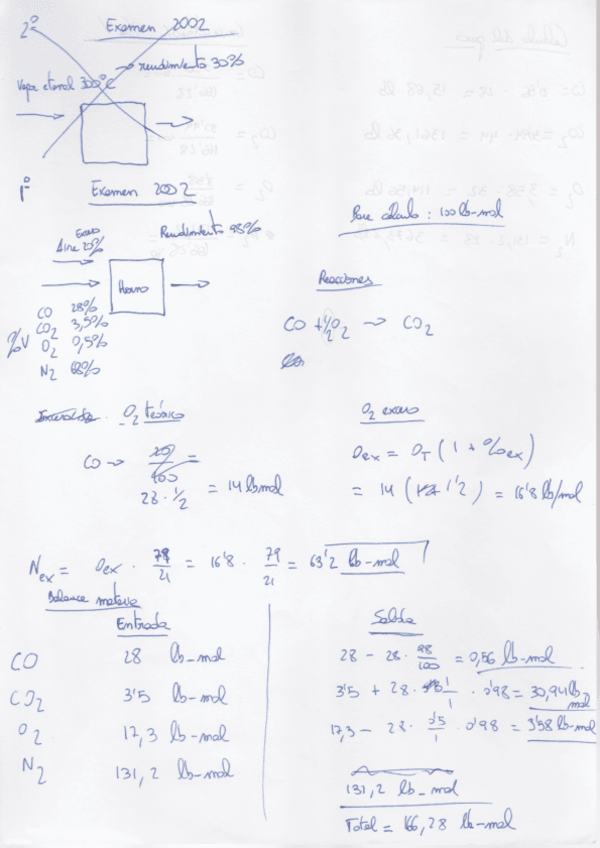 2º Examen 2002
rendimiento 30%
Vapor etanol 300ºC
1º Examen 2002
Exceso
Aire 20%
Rendimiento 98%
Base cálculo : 100 lb-mol
Horno
%V
CO 28%
CO2 3,5%
O2 0,5%
N2 68%
Reacciones
CO + 1/2 O2 → CO2
O2 teórico
CO → 28 · 1/2 = 14 lbmol
O2 exceso
Oex = OT (1 + %ex)
= 14 ( 1'2 ) = 16'8 lb/mol
Nex = Oex · 79/21 = 16'8 · 79/21 = 63'2 lb-mol
Balance materia
Entrada
CO 28 lb-mol
CO2 3'5 lb-mol
O2 17,3 lb-mol
N2 131,2 lb-mol
Salida
28 - 28 · 98/100 = 0,56 lb-mol
3'5 + 28 · 1/1 · 0'98 = 30,94 lb mol
17,3 - 28 · 0'5/1 · 0'98 = 3'58 lb-mol
131,2 lb-mol
Total = 166,28 lb-mol